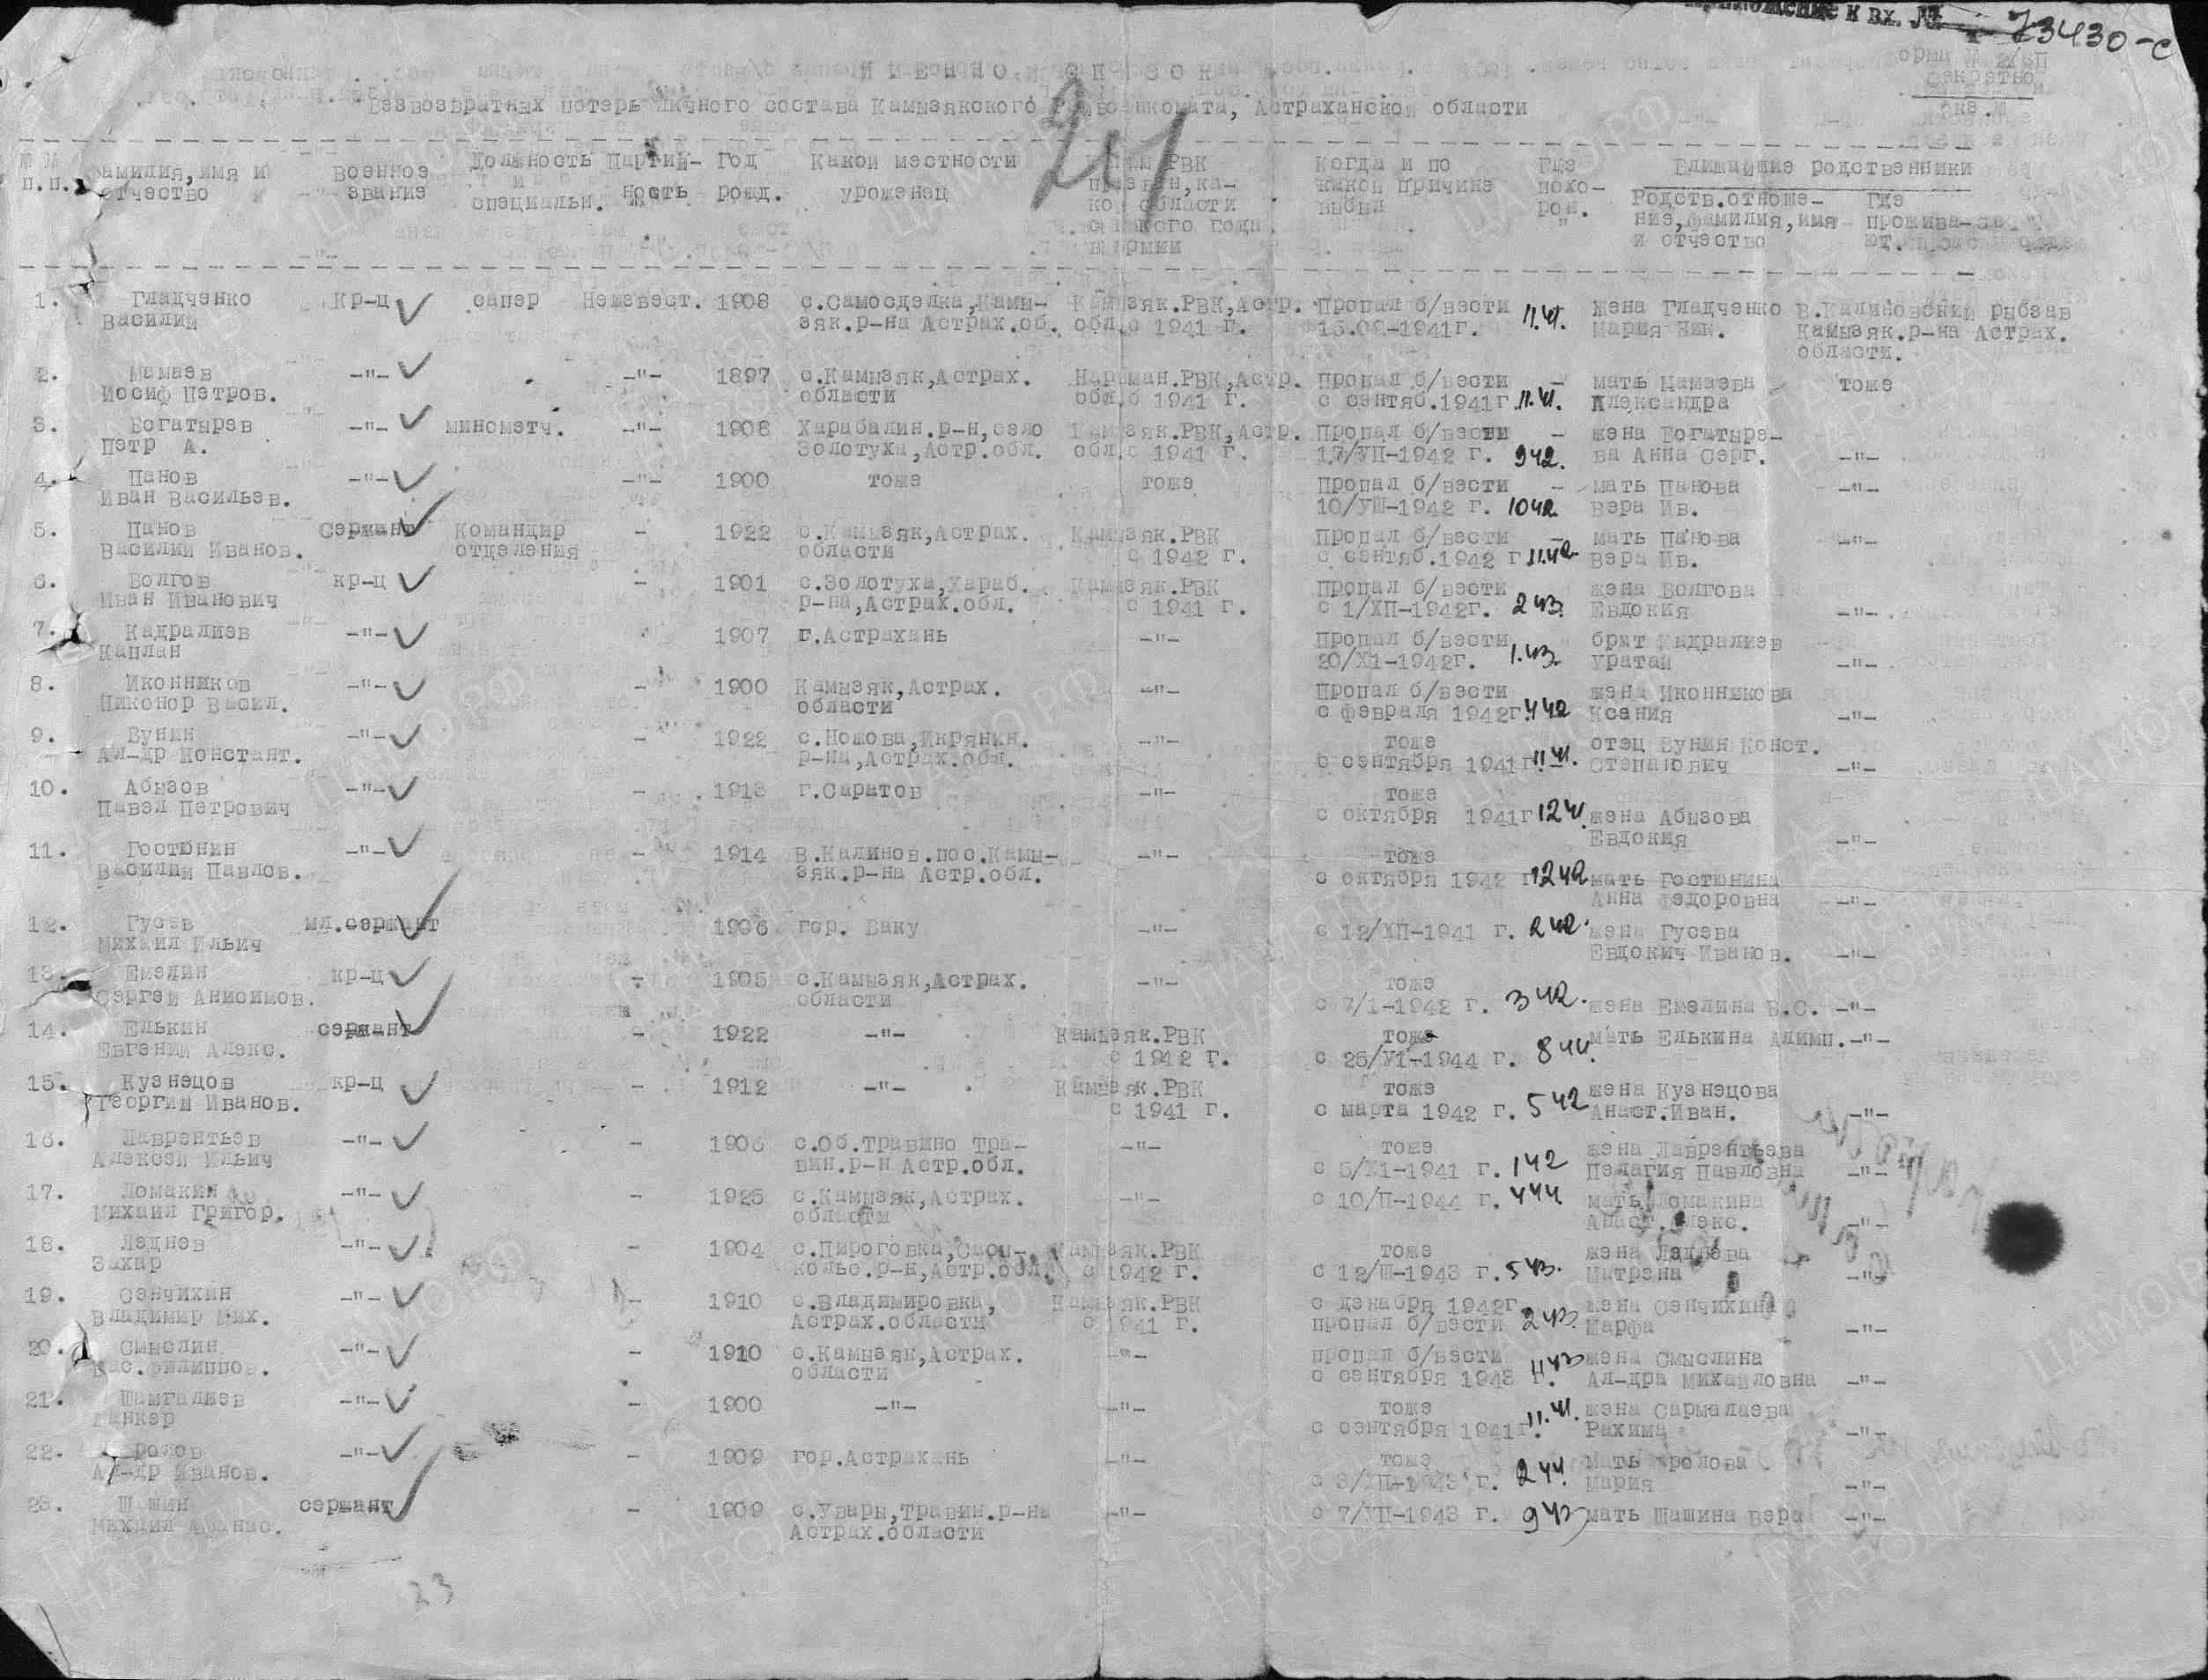 Приложение к вх. № 73430-с
формы № 2/БП
Секретно
экз. №
ИМЕННОЙ СПИСОК
Безвозвратных потерь личного состава Камызякского Райвоенкомата, Астраханской области
№№ п.п. Фамилия,имя и отчество Военное звание Должность и специальн. Партий-ность Год рожд. Какой местности уроженец Каким РВК призван,ка-кой области с какого года в армии Когда и по какой причине выбыл Где похо-рон. Ближайшие родственники
Родств.отноше-ние,фамилия,имя и отчество Где прожива-ют.
1. Гладченко Кр-ц сапер Неизвест. 1908 с.Самосделка,Камы- Камызяк.РВК,Астр. Пропал б/вести жена Гладченко В.Калиновский рыбзав
Василий зяк.р-на Астрах.об. обл.с 1941 г. 15.09-1941г. 11.41. Мария Ник. Камызяк.р-на Астрах.
области.
2. Мамаев -"- -"- 1897 с.Камызяк,Астрах. Нариман.РВК,Астр. Пропал б/вести - мать Мамаева тоже
Иосиф Петров. области обл.с 1941 г. с сентяб.1941г. 11.41. Александра
3. Богатырев -"- минометч. -"- 1908 Харабалин.р-н,село Камызяк.РВК,Астр. Пропал б/вести - жена Богатыре-
Петр А. Золотуха,Астр.обл. обл.с 1941 г. 17/VII-1942 г. 942. ва Анна Серг. -"-
4. Панов -"- -"- 1900 тоже тоже Пропал б/вести - мать Панова -"-
Иван Васильев. 10/VIII-1942 г. 1042. Вера Ив.
5. Панов Сержант Командир - 1922 с.Камызяк,Астрах. Камызяк.РВК Пропал б/вести - мать Панова -"-
Василий Иванов. отделения области с 1942 г. с сентяб.1942 г. 11.42 Вера Ив.
6. Волгов кр-ц - 1901 с.Золотуха,Хараб. Камызяк.РВК Пропал б/вести жена Волгова
Иван Иванович р-на,Астрах.обл. с 1941 г. с 1/XII-1942г. 243. Евдокия -"-
7. Кадралиев -"- 1907 г.Астрахань -"- Пропал б/вести брат Кадралиев
Каплан 20/XI-1942г. 1.43. Уратай -"-
8. Иконников -"- - 1900 Камызяк,Астрах. -"- Пропал б/вести жена Иконникова
Никонор Васил. области с февраля 1942г. 442 Ксения -"-
9. Бунин -"- - 1922 с.Ножова,Икрянин. -"- тоже отец Бунин Конст.
Ал-др Констант. р-на,Астрах.обл. с сентября 1941г. 11.41. Степанович -"-
10. Абызов -"- - 1913 г.Саратов -"- тоже
Павел Петрович с октября 1941г 1241. жена Абызова
Евдокия -"-
11. Гостюнин -"- - 1914 В.Калинов.пос.Камы- -"- тоже
Василий Павлов. зяк.р-на Астр.обл. с октября 1942 г 1242 мать Гостюнина
Анна Федоровна -"-
12. Гусев мл.сержант 1906 гор. Баку -"- с 12/XII-1941 г. 242. жена Гусева
Михаил Ильич Евдокия Иванов. -"-
13. Емелин кр-ц - 1905 с.Камызяк,Астрах. -"- тоже
Сергей Анисимов. области с 7/1-1942 г. 342. жена Емелина В.С. -"-
14. Елькин сержант - 1922 -"- Камызяк.РВК тоже мать Елькина Алимп. -"-
Евгений Алекс. с 1942 г. с 25/VI-1944 г. 844.
15. Кузнецов кр-ц - 1912 -"- Камызяк.РВК тоже жена Кузнецова
Георгий Иванов. с 1941 г. с марта 1942 г. 542 Анаст.Иван. -"-
16. Лаврентьев -"- - 1906 с.Об.Травино Тра- -"- тоже жена Лаврентьева
Алексей Ильич вин.р-н Астр.обл. с 5/XI-1941 г. 142 Пелагия Павловна -"-
17. Ломакин -"- - 1925 с.Камызяк,Астрах. -"- с 10/II-1944 г. 444 мать Ломакина
Михаил Григор. области Анаст.Алекс. -"-
18. Леднев -"- - 1904 с.Пироговка, Камызяк.РВК тоже жена Леднева
Захар р-н,Астр.обл. с 1942 г. с 12/III-1943 г. 543. Матрена -"-
19. Сенчихин -"- - 1910 с.Владимировка, Камызяк.РВК с декабря 1942г. жена Сенчихина
Владимир Мих. Астрах.области с 1941 г. пропал б/вести 243. Марфа -"-
20. Смыслин -"- 1910 с.Камызяк,Астрах. -"- пропал б/вести жена Смыслина
Вас.Филиппов. области с сентября 1943 г. 1143 Ал-дра Михайловна -"-
21. Шамгалиев -"- - 1900 -"- -"- тоже жена Сармалаева
с сентября 1941г. 11.41. Рахима -"-
22. Фролов -"- - 1909 гор.Астрахань -"- тоже мать Фролова
Ал-др Иванов. с 3/XII-1943 г. 244. Мария -"-
23. Шашин сержант - 1909 с.Увары,Травин.р-на -"- с 7/VII-1943 г. 943 мать Шашина Вера -"-
Михаил Афанас. Астрах.области
23